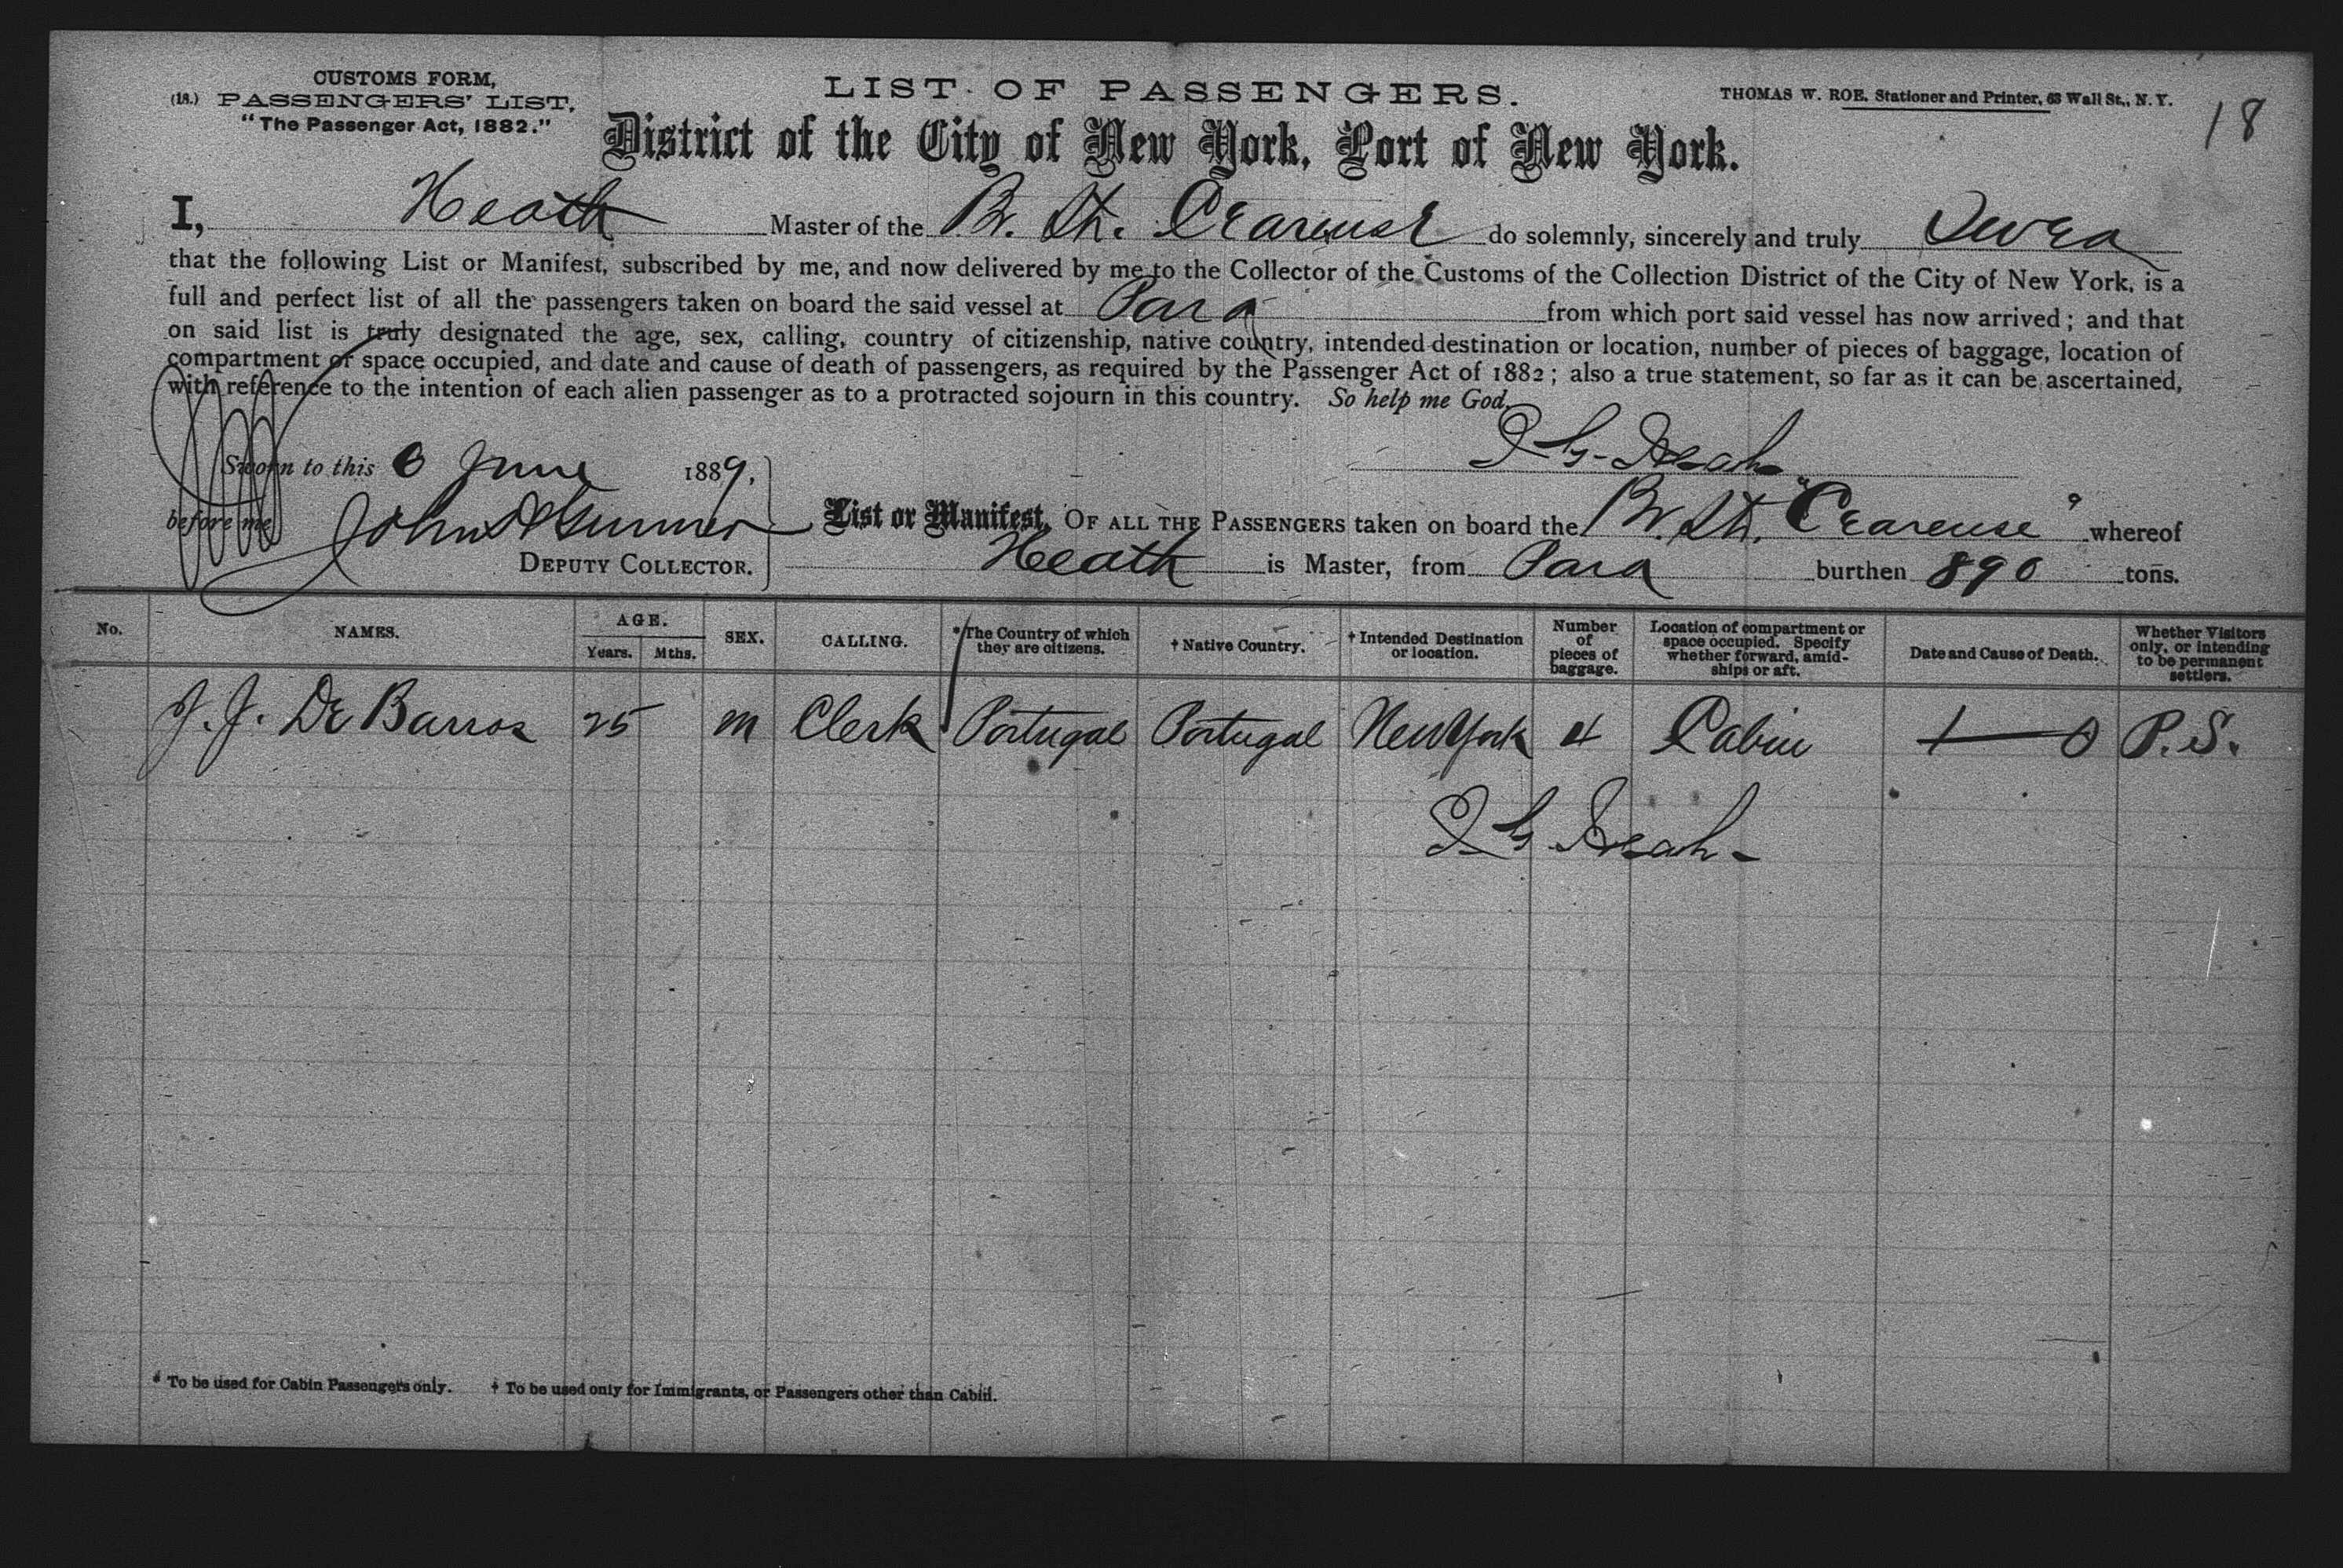 CUSTOMS FORM,
(18.) PASSENGERS' LIST,
"The Passenger Act, 1882."
LIST OF PASSENGERS.
THOMAS W. ROE, Stationer and Printer, 63 Wall St., N.Y.
18
District of the City of New York, Port of New York.
I, Heath Master of the Br. Str. Cearense do solemnly, sincerely and truly Swear
that the following List or Manifest, subscribed by me, and now delivered by me to the Collector of the Customs of the Collection District of the City of New York, is a
full and perfect list of all the passengers taken on board the said vessel at Para from which port said vessel has now arrived; and that
on said list is truly designated the age, sex, calling, country of citizenship, native country, intended destination or location, number of pieces of baggage, location of
compartment or space occupied, and date and cause of death of passengers, as required by the Passenger Act of 1882; also a true statement, so far as it can be ascertained,
with reference to the intention of each alien passenger as to a protracted sojourn in this country. So help me God.
Heath
Sworn to this 6 June 1889,
before me John
DEPUTY COLLECTOR.
List or Manifest, OF ALL THE PASSENGERS taken on board the Br. Str. "Cearense" whereof
Heath is Master, from Para burthen 890 tons.
No. NAMES. AGE. Years. Mths. SEX. CALLING. *The Country of which they are citizens. †Native Country. †Intended Destination or location. Number of pieces of baggage. Location of compartment or space occupied. Specify whether forward, amidships or aft. Date and Cause of Death. Whether Visitors only, or intending to be permanent settlers.
J. J. De Barros 25 m Clerk Portugal Portugal New York 4 Cabin P.S.
Heath
* To be used for Cabin Passengers only. † To be used only for Immigrants, or Passengers other than Cabin.